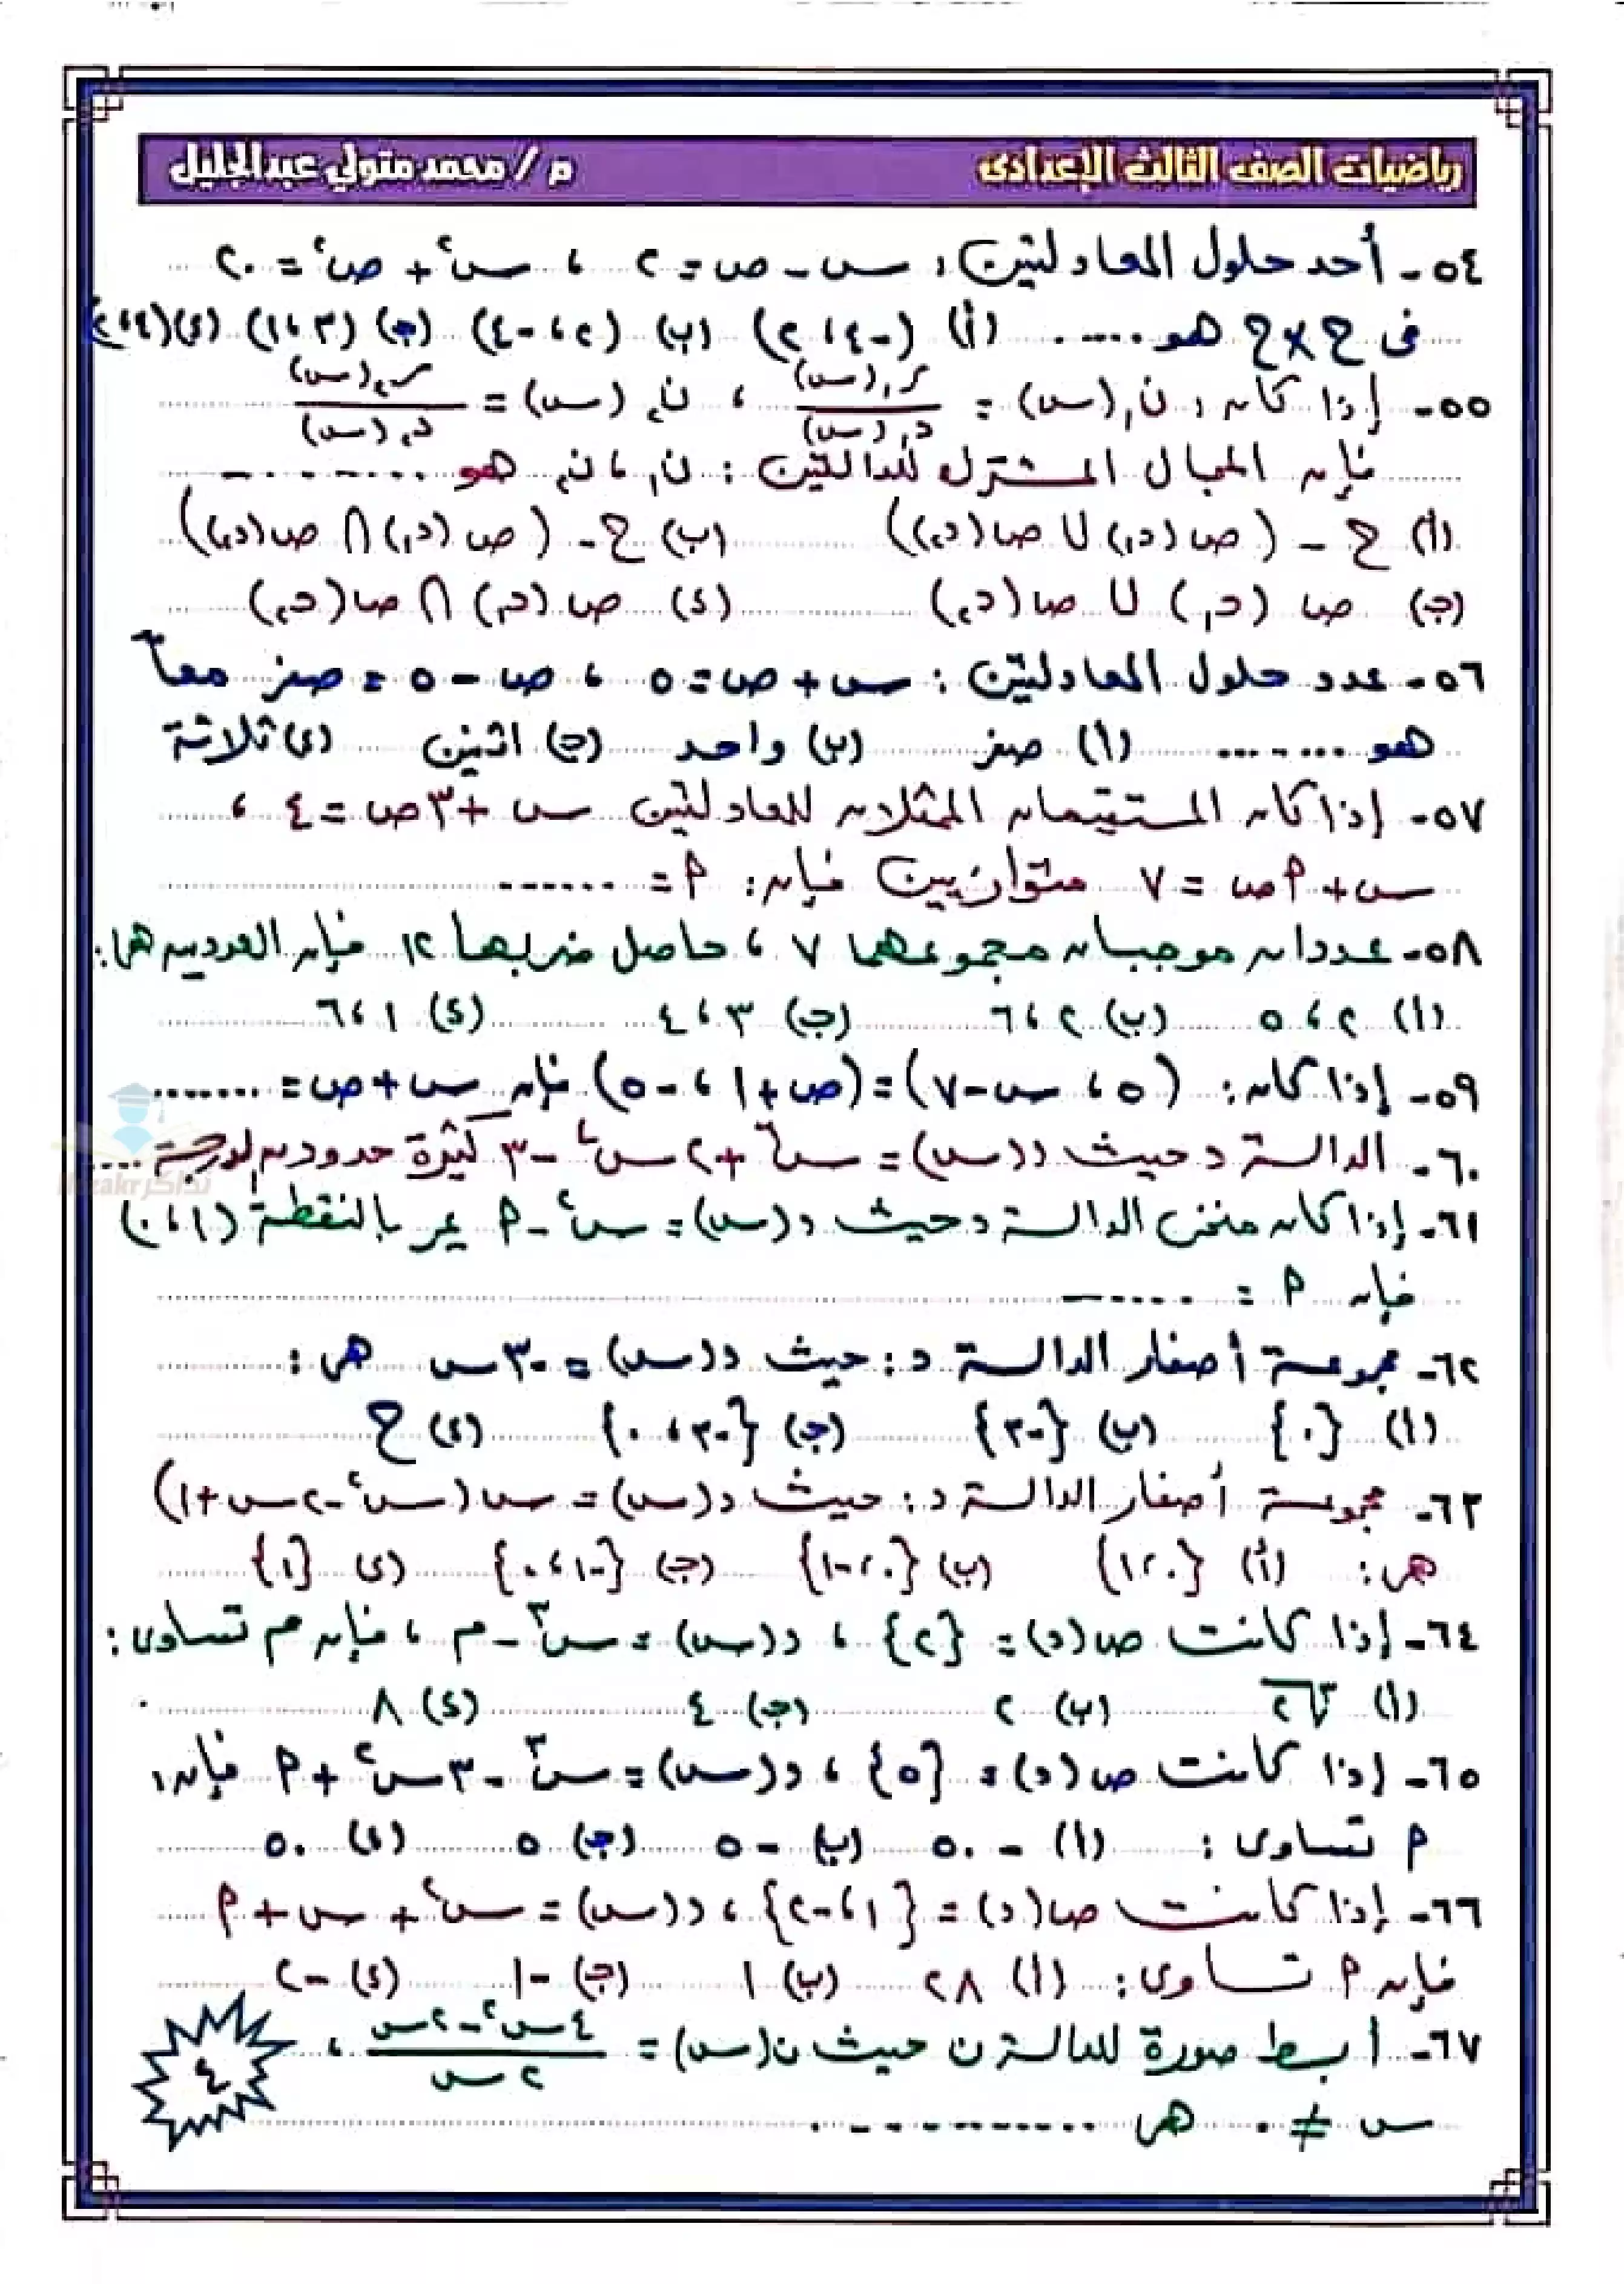 رياضيات الصف الثالث الإعدادى م / محمد متولي عبدالجليل
٥٤- أحد حلول المعادلتين : س - ص = ٢ ، س٢ + ص٢ = ٢٠
فى ح × ح هو ...... (أ) (-٤ ، ٢) (ب) (٢ ، -٤) (ج) (٣ ، ١) (د) (٤ ، ٢)
٥٥- إذا كان : ن١(س) = ر١(س) / د١(س) ، ن٢(س) = ر٢(س) / د٢(س)
فإن المجال المشترك للدالتين : ن١ ، ن٢ هو ........
(أ) ح - (ص(د١) ∪ ص(د٢)) (ب) ح - (ص(د١) ∩ ص(د٢))
(ج) ص(د١) ∪ ص(د٢) (د) ص(د١) ∩ ص(د٢)
٥٦- عدد حلول المعادلتين : س + ص = ٥ ، ص - ٥ = صفر معاً
هو ....... (أ) صفر (ب) واحد (ج) اثنين (د) ثلاثة
٥٧- إذا كان المستقيمان الممثلان للمعادلتين س + ٣ص = ٤ ،
س + م ص = ٧ متوازيين فإن : م = ......
٥٨- عددان موجبان مجموعهما ٧ ، حاصل ضربهما ١٢ فإن العددين هما :
(أ) ٢ ، ٥ (ب) ٢ ، ٦ (ج) ٣ ، ٤ (د) ١ ، ٦
٥٩- إذا كان : (٥ ، س - ٧) = (ص + ١ ، -٥) فإن س + ص = .......
٦٠- الدالة د حيث د(س) = س٦ + ٢س٤ - ٣ كثيرة حدود من الدرجة ....
٦١- إذا كان منحنى الدالة د حيث د(س) = س٢ - م يمر بالنقطة (١ ، ٠)
فإن م = ......
٦٢- مجموعة أصفار الدالة د : حيث د(س) = -٣س هى :
(أ) {٠} (ب) {-٣} (ج) {-٣ ، ٠} (د) ح
٦٣- مجموعة أصفار الدالة د : حيث د(س) = س(س٢ - ٢س + ١)
هى : (أ) {٠ ، ١} (ب) {٠ ، -١} (ج) {-١ ، ٠} (د) {١}
٦٤- إذا كانت ص(د) = {٢} ، د(س) = س٣ - م ، فإن م تساوى :
(أ) ∛٢ (ب) ٢ (ج) ٤ (د) ٨
٦٥- إذا كانت ص(د) = {٥} ، د(س) = س٣ - ٣س٢ + م فإن :
م تساوى : (أ) -٥٠ (ب) -٥ (ج) ٥ (د) ٥٠
٦٦- إذا كانت ص(د) = {١ ، -٢} ، د(س) = س٢ + س + م
فإن م تساوى : (أ) ٢٨ (ب) ١ (ج) -١ (د) -٢
٦٧- أبسط صورة للدالة ن حيث ن(س) = ٤س٢ - ٢س / ٢س ،
س ≠ ٠ هى ............
٤